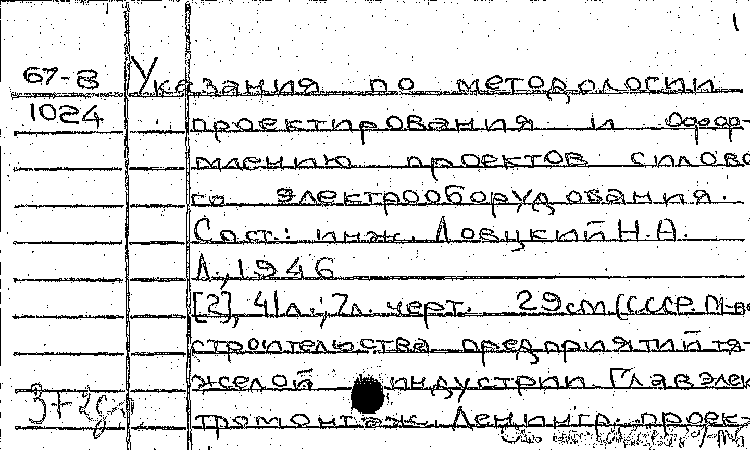 1
67-8 Указания по методологии
1024 проектирования и офор-
млению проектов силово
го электрооборудования.
Сост.: инж. Ловцкий Н.А.
Л., 1946
[2], 41л.; 7л. черт. 29см (СССР. М-во
строительства предприятий тя-
желой индустрии. Главэлек
тромонтаж. Ленингр. проек-